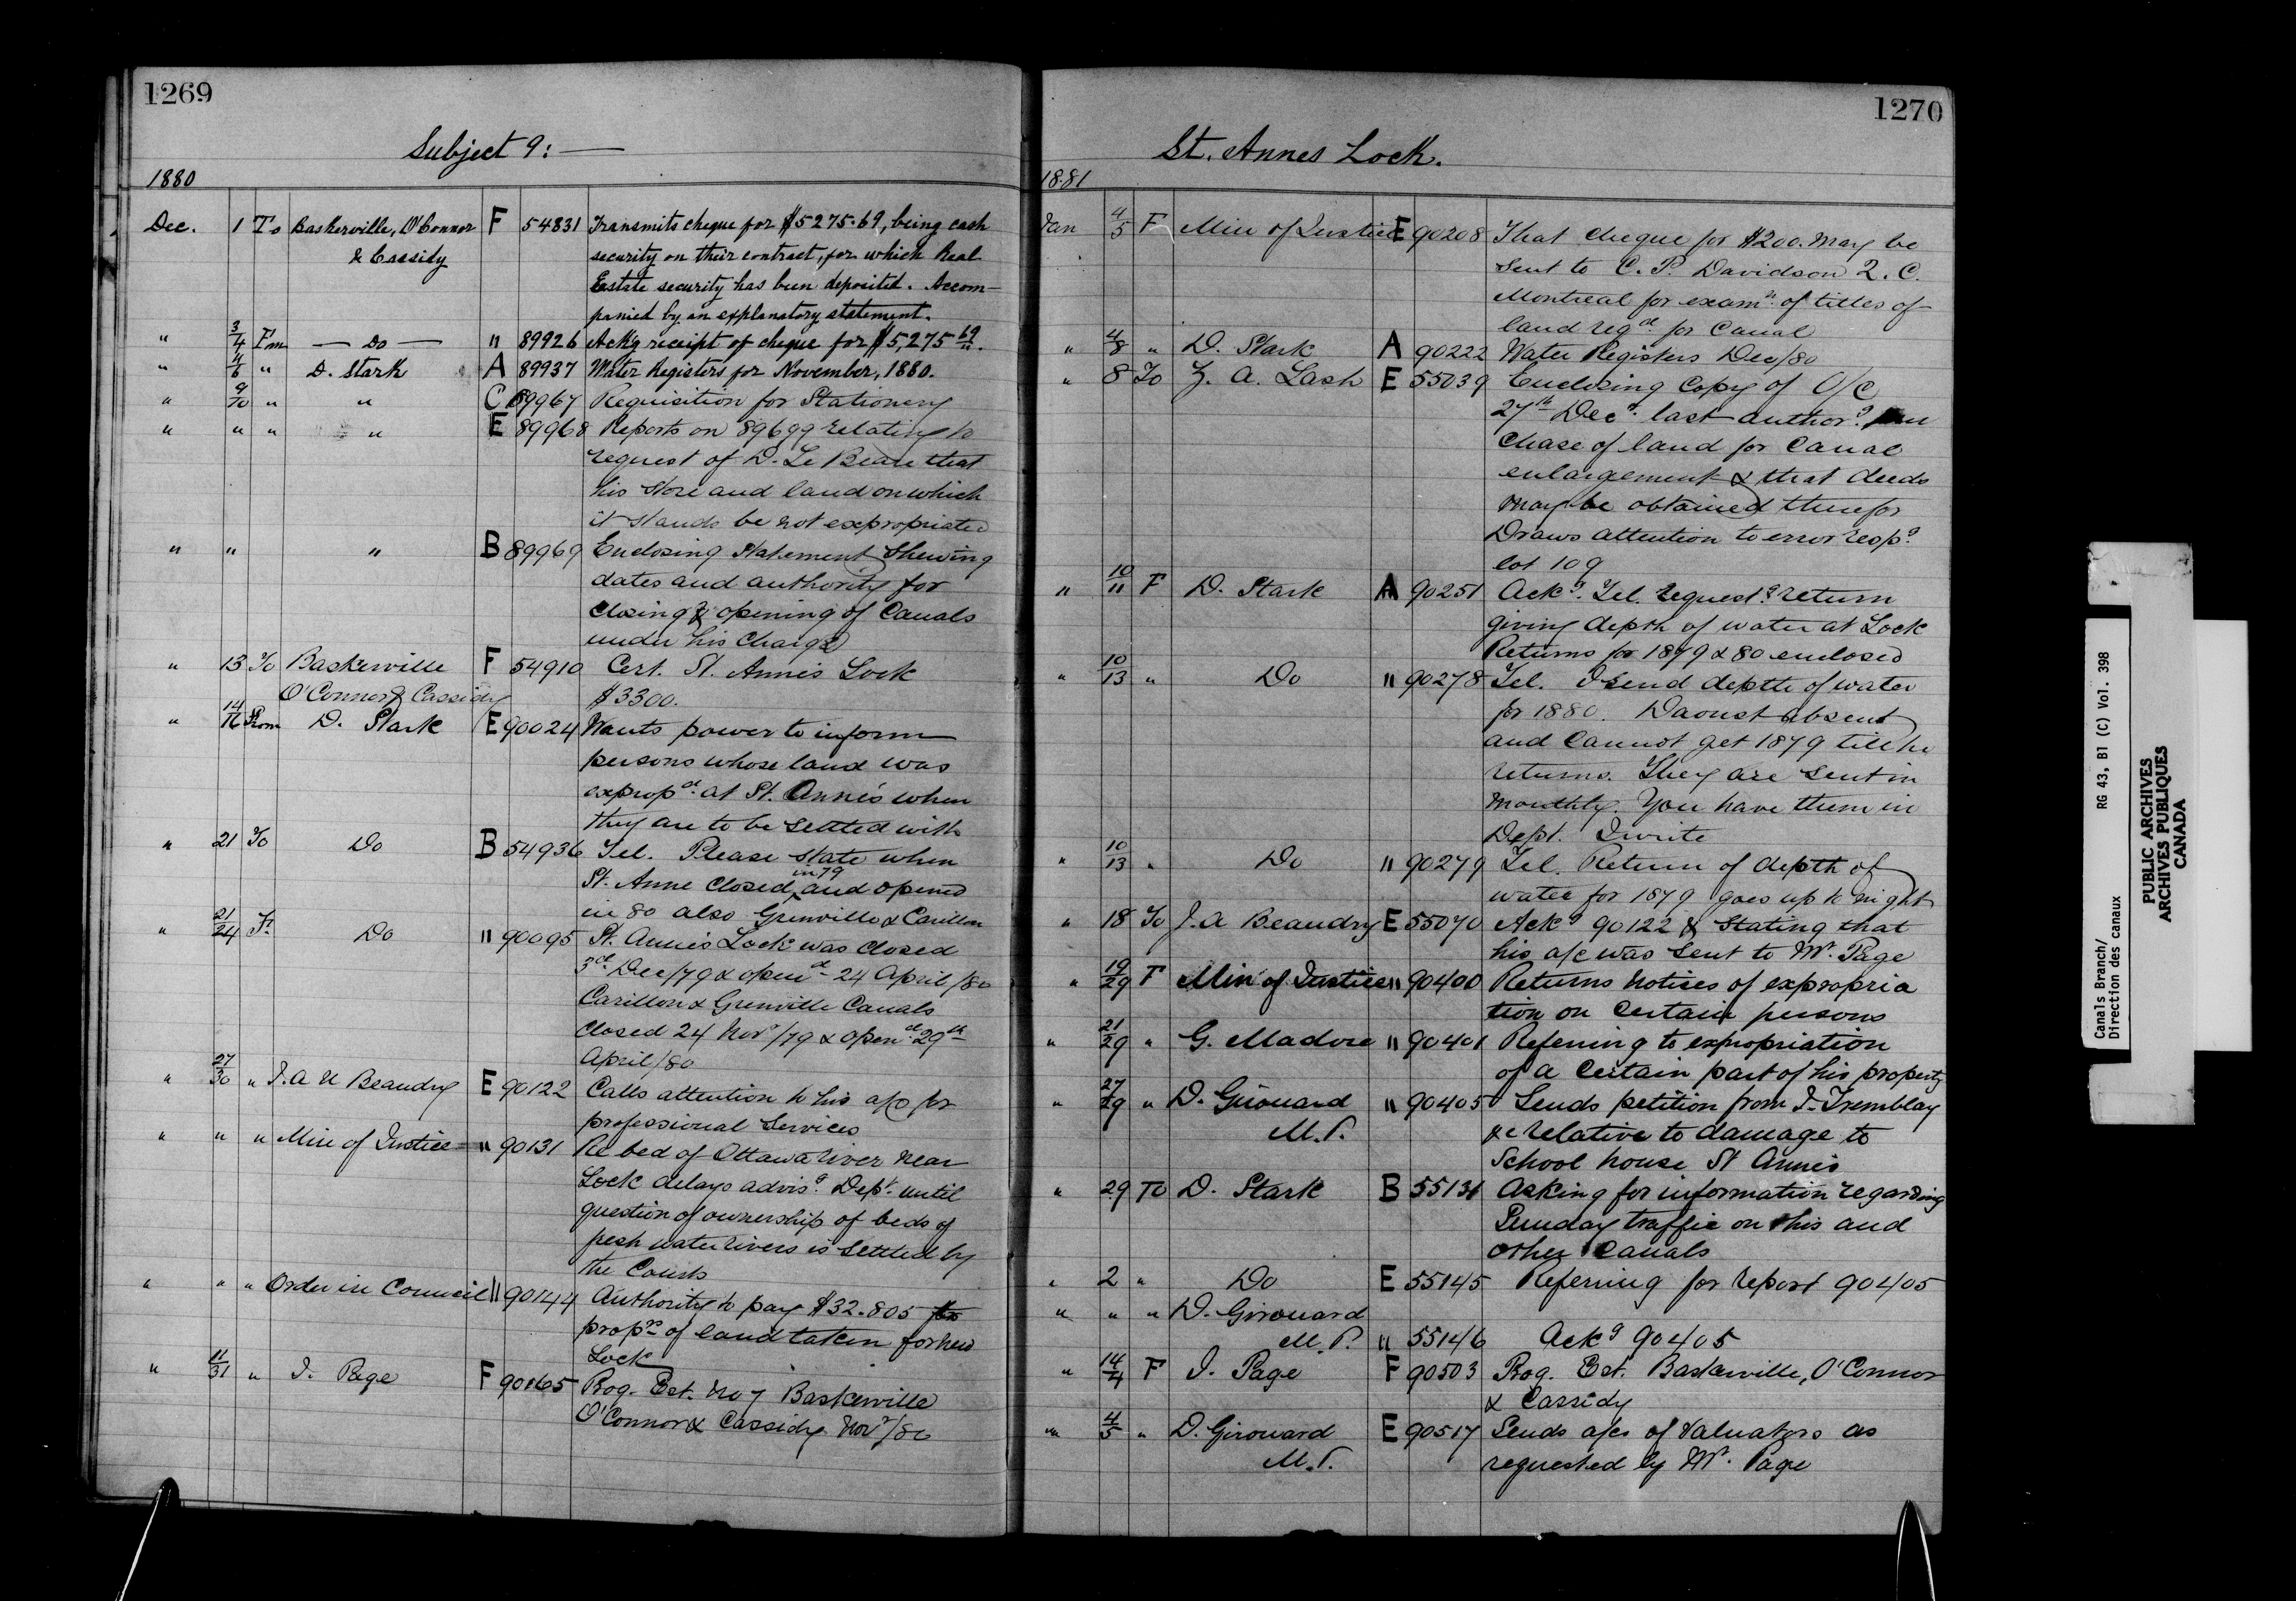 1269
Subject 9: —
1880
Dec. 1 To Baskerville, O'Connor F 54831 Transmits cheque for $5275.69, being cash
& Cassidy security on their contract, for which Real
Estate security has been deposited. Accom-
panied by an explanatory statement.
" 3/4 Fm — Do — " 89926 Ackg receipt of cheque for $5,275 69/".
" 4/6 " D. Stark A 89937 Water Registers for November, 1880.
" 9/10 " " C 89967 Requisition for Stationery
" " " " E 89968 Reports on 89699 relating to
request of D. Le Beau that
his store and land on which
it stands be not expropriated
" " " B 89969 Enclosing Statement Shewing
dates and authority for
closing & opening of Canals
under his charge
" 13 To Baskerville F 54910 Cert. St. Annes Lock
O'Connor & Cassidy $3300.
" 14/16 From D. Stark E 90024 Wants power to inform
persons whose land was
expropd. at St. Anne's when
they are to be settled with
" 21 To Do B 54936 Tel. Please state when
St. Anne closed in 79 and opened
in 80 also Grenville & Carillon
" 21/24 F. Do " 90095 St. Annes Lock was closed
3d. Dec/79 & opend. 24 April/80
Carillon & Grenville Canals
closed 24 Novr/79 & opend. 29th
April/80
" 27/30 " J. A U Beaudry E 90122 Calls attention to his a/c for
professional services
" " " Min of Justice " 90131 Re bed of Ottawa river near
Lock delays advisg. Dept. until
question of ownership of beds of
fresh water rivers is settled by
the Courts
" " " Order in Council " 90144 Authority to pay $32.805 for
proprs of land taken for new
Lock
" 11/31 " J. Page F 90165 Prog. Est. No 7 Baskerville
O'Connor & Cassidy Novr/80
1270
St. Annes Lock.
1881
Jan 4/5 F Min of Justice E 90208 That cheque for $200. may be
sent to C. P. Davidson Q. C.
Montreal for examn. of titles of
land reqd. for Canal
" 4/8 " D. Stark A 90222 Water Registers Dec/80
" 8 To Z. A. Lash E 55039 Enclosing copy of O/C
27th Decr. last authorg. pur
chase of land for Canal
enlargement & that deeds
may be obtained therefor
Draws attention to error respg.
lot 109
" 10/11 F D. Stark A 90251 Ackg. Tel. requestg. return
giving depth of water at Lock
Returns for 1879 & 80 enclosed
" 10/13 " Do " 90278 Tel. I send depth of water
for 1880. Daoust absent
and cannot get 1879 till he
returns. They are sent in
monthly. You have them in
Dept. I write
" 10/13 " Do " 90279 Tel. Return of depth of
water for 1879 goes up to night
" 18 To J. A Beaudry E 55070 Ackg 90122 & Stating that
his a/c was sent to Mr. Page
" 19/29 F Min of Justice " 90400 Returns notices of expropria
tion on certain persons
" 21/29 " G. Madore " 90401 Referring to expropriation
of a certain part of his property
" 27/29 " D. Girouard " 90405 Sends petition from J. Tremblay
M.P. &c relative to damage to
School house St Anne's
" 29 To D. Stark B 55131 Asking for information regarding
Sunday traffic on this and
other Canals
" 2 " Do E 55145 Referring for report 90405
" " " D. Girouard
M.P. " 55146 Ackg 90405
" 14/4 F J. Page F 90503 Prog. Est. Baskerville, O'Connor
& Cassidy
" 4/5 " D. Girouard E 90517 Sends a/cs of Valuators as
M.P. requested by Mr. Page
Canals Branch/ RG 43, B1 (C) Vol. 398
Direction des canaux
PUBLIC ARCHIVES
ARCHIVES PUBLIQUES
CANADA